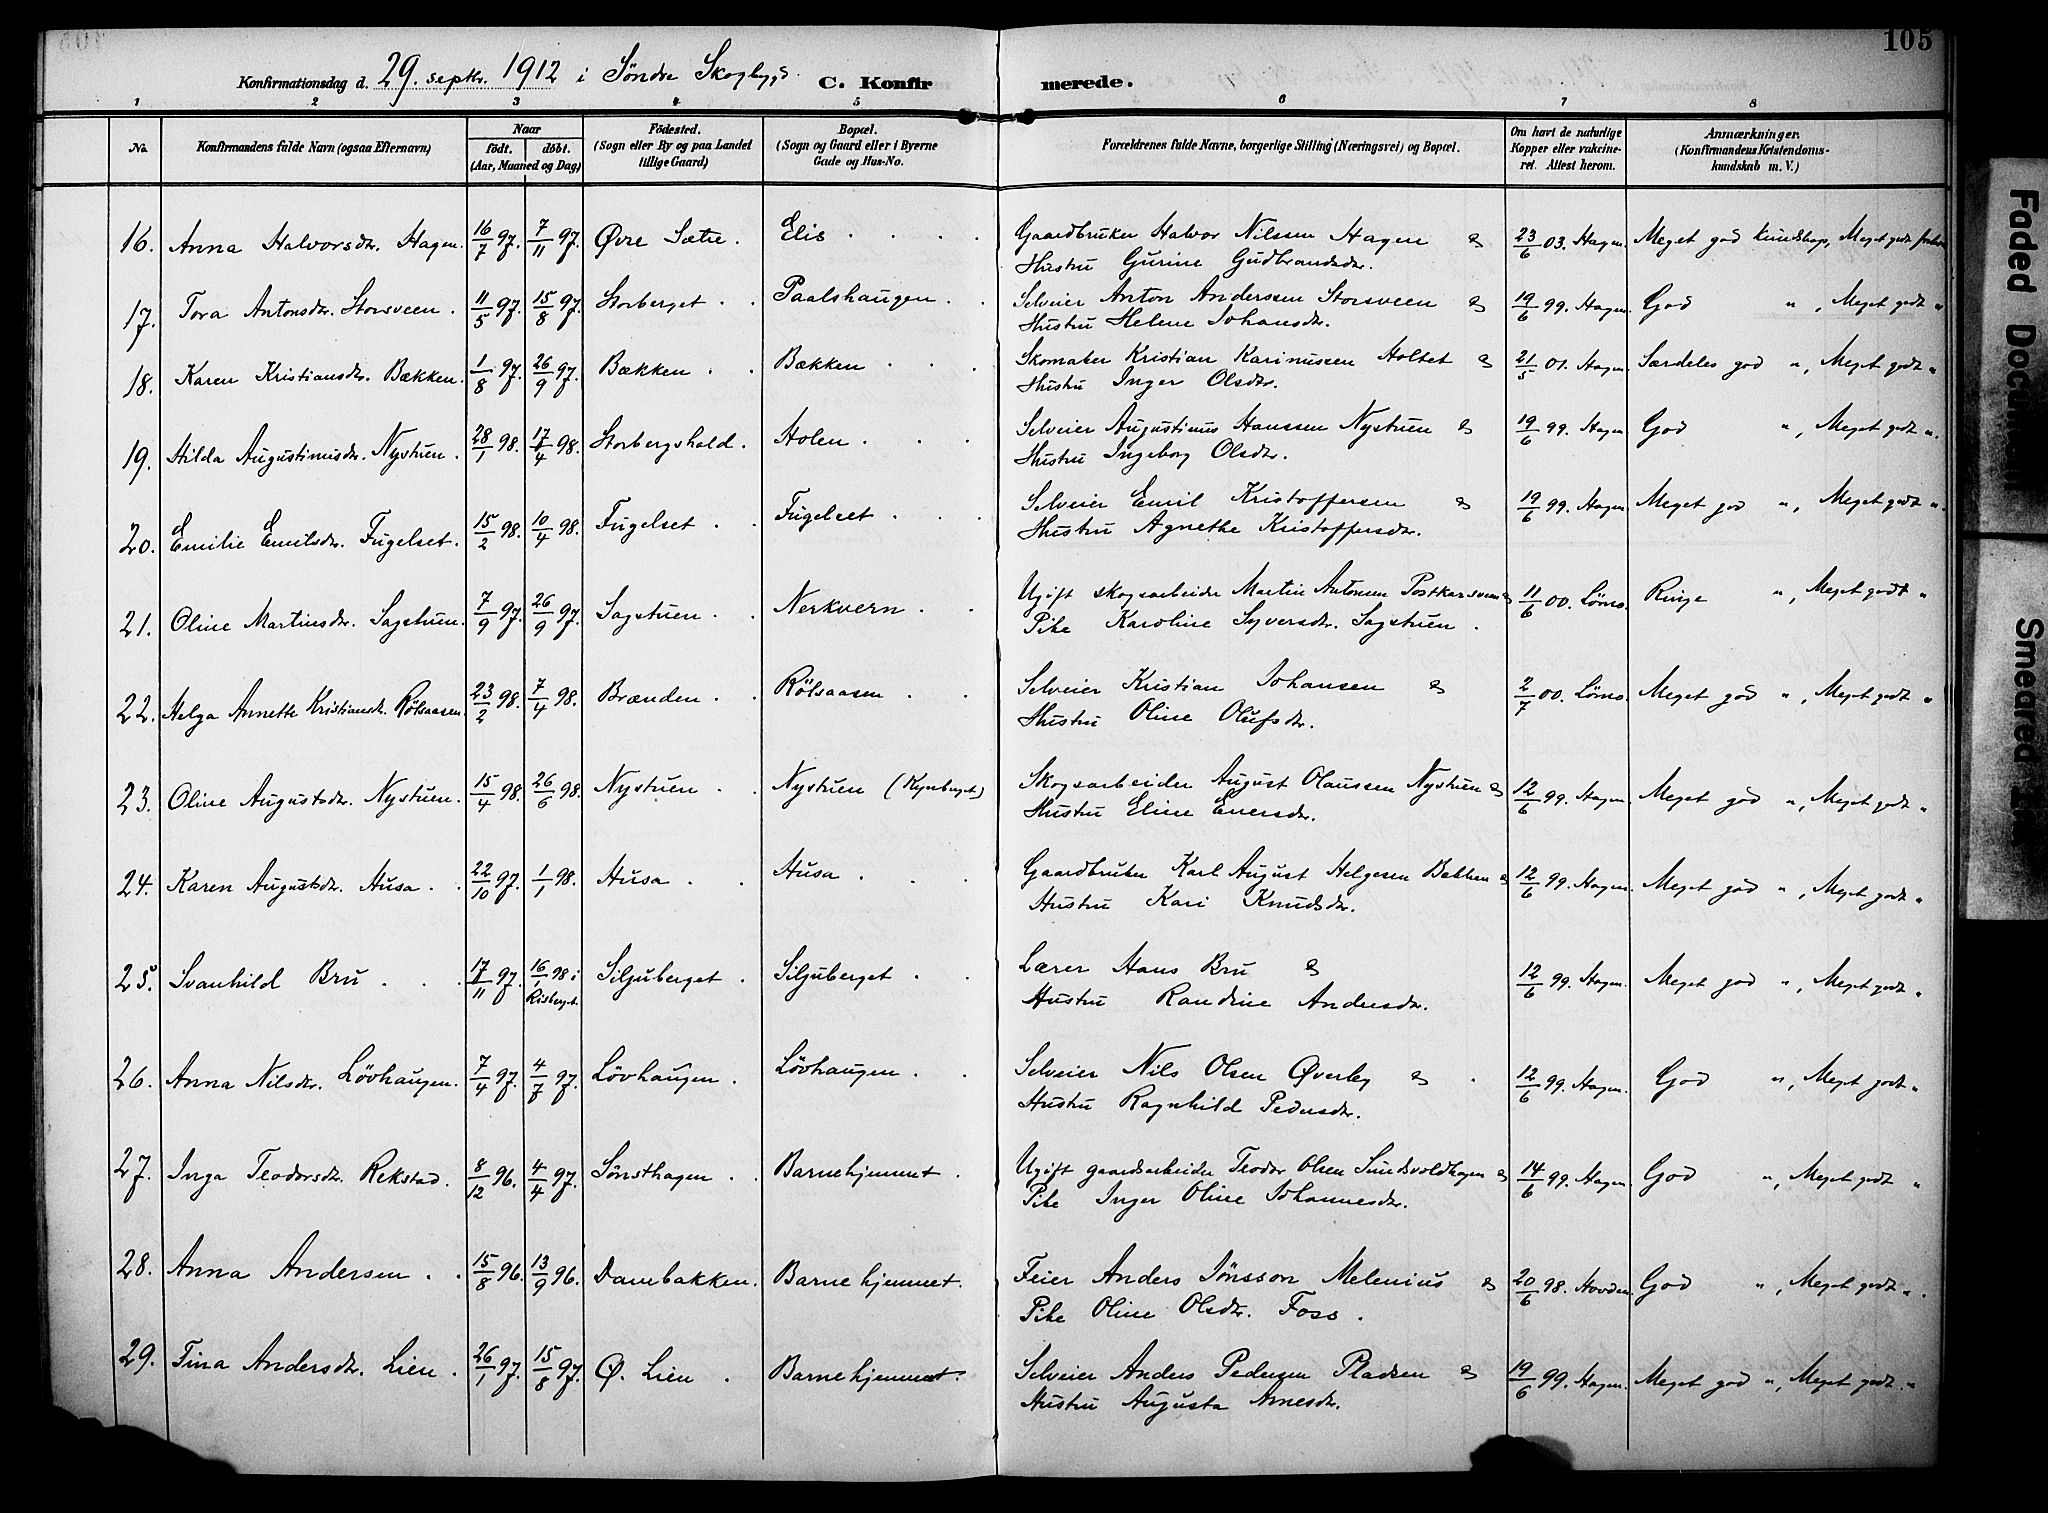 105
Konfirmationsdag d. 29. septbr. 1912 i Søndre Skogbygd C. Konfirmerede.
1 2 3 4 5 6 7 8
No.
Konfirmandens fulde Navn (ogsaa Efternavn)
Naar
födt. döbt.
(Aar, Maaned og Dag)
Födested.
(Sogn eller By og paa Landet
tillige Gaard)
Bopæl.
(Sogn og Gaard eller i Byerne
Gade og Hus-No.
Forældrenes fulde Navne, borgerlige Stilling (Næringsvei) og Bopæl.
Om havt de naturlige
Kopper eller vakcine-
ret. Attest herom.
Anmærkninger.
(Konfirmandens Kristendoms-
kundskab m. V.)
16. Anna Halvorsdtr. Hagen. 16/7 97. 7/11 97. Øvre Sætre. Elis Gaardbruker Halvor Nilssen Hagen & 23/6 03. Hagen. Meget god kundskap, Meget godt
Hustru Gurine Gudbrandsdtr.
17. Tora Antonsdtr. Storsveen. 11/5 97. 15/8 97. Storberget Paalshaugen Selveier Anton Anderssen Storsveen & 19/6 99. Hagen. God ", Meget godt "
Hustru Helene Johansdtr.
18. Karen Kristiansdtr. Bækken. 1/8 97. 26/9 97. Bækken Bækken Skomaker Kristian Karinussen Holtet & 21/5 01. Hagen. Særdeles god ", Meget godt "
Hustru Inger Olsdtr.
19. Hilda Augustinusdtr. Nystuen. 28/1 98. 17/4 98. Storbergshold. Holen Selveier Augustinus Hanssen Nystuen & 19/6 99. Hagen God ", Meget godt ".
Hustru Ingeborg Olsdtr.
20. Emilie Emilsdtr. Fugelset. 15/2 98. 10/4 98. Fugelset Fugelset Selveier Emil Kristoffersen & 19/6 99. Hagen Meget god ", Meget godt ".
Hustru Agnethe Kristoffersdtr.
21. Oline Martinsdtr. Sagstuen. 7/9 97. 26/9 97. Sagstuen Nerkvern Ugift skogsarbeider Martin Antonsen & 11/6 00. Lömo. Ringe ", Meget godt "
Pike Karoline Syversdtr. Sagstuen.
22. Helga Annette Kristiansdtr. Rölsaasen. 23/2 98. 7/4 98. Brænden Rölsaasen Selveier Kristian Johansen & 2/7 00. Lömo. Meget god ", Meget godt "
Hustru Oline Olufsdtr.
23. Oline Augustsdtr. Nystuen. 15/4 98. 26/6 98. Nystuen Nystuen (Kynberget) Skogsarbeider August Olaussen Nystuen & 12/6 99. Hagen. Meget god ", Meget godt "
Hustru Eline Enersdtr.
24. Karen Augustsdtr. Husa 22/10 97. 1/1 98. Husa Husa Gaardbruker Karl August Helgesen Bækken & 12/6 99. Hagen. Meget god ", Meget godt "
Hustru Kari Knudsdtr.
25. Svanhild Bru 17/11 97. 16/1 98 i Risberget. Siljuberget Siljuberget Lærer Hans Bru & 12/6 99. Hagen. Meget god ", Meget godt "
Hustru Randine Andersdtr.
26. Anna Nilsdtr. Lövhaugen. 7/4 97. 4/7 97. Lövhaugen Lövhaugen Selveier Nils Olsen Øverby & 12/6 99. Hagen. God ", Meget godt "
Hustru Ragnhild Pedersdtr.
27. Inga Teodorsdtr. Rekstad. 8/12 96. 4/4 97. Sönsthagen Barnehjemmet Ugift gaardsarbeider Teodor Olsen Sundsvoldhagen & 14/6 99. Hagen. God ", Meget godt "
Pike Inger Oline Johannesdtr.
28. Anna Andersen 15/8 96. 13/9 96. Dambakken. Barnehjemmet. Feier Anders Jönsson Melenius & 20/6 98. Hovden. God ", Meget godt ".
Pike Oline Olsdtr. Foss.
29. Tina Andersdtr. Lien 26/1 97. 15/8 97. Ø. Lien Barnehjemmet. Selveier Anders Pedersen Pladsen & 19/6 99. Hagen. Meget god ", Meget godt "
Hustru Augusta Arnesdtr.
Faded Document
Smeared Ink